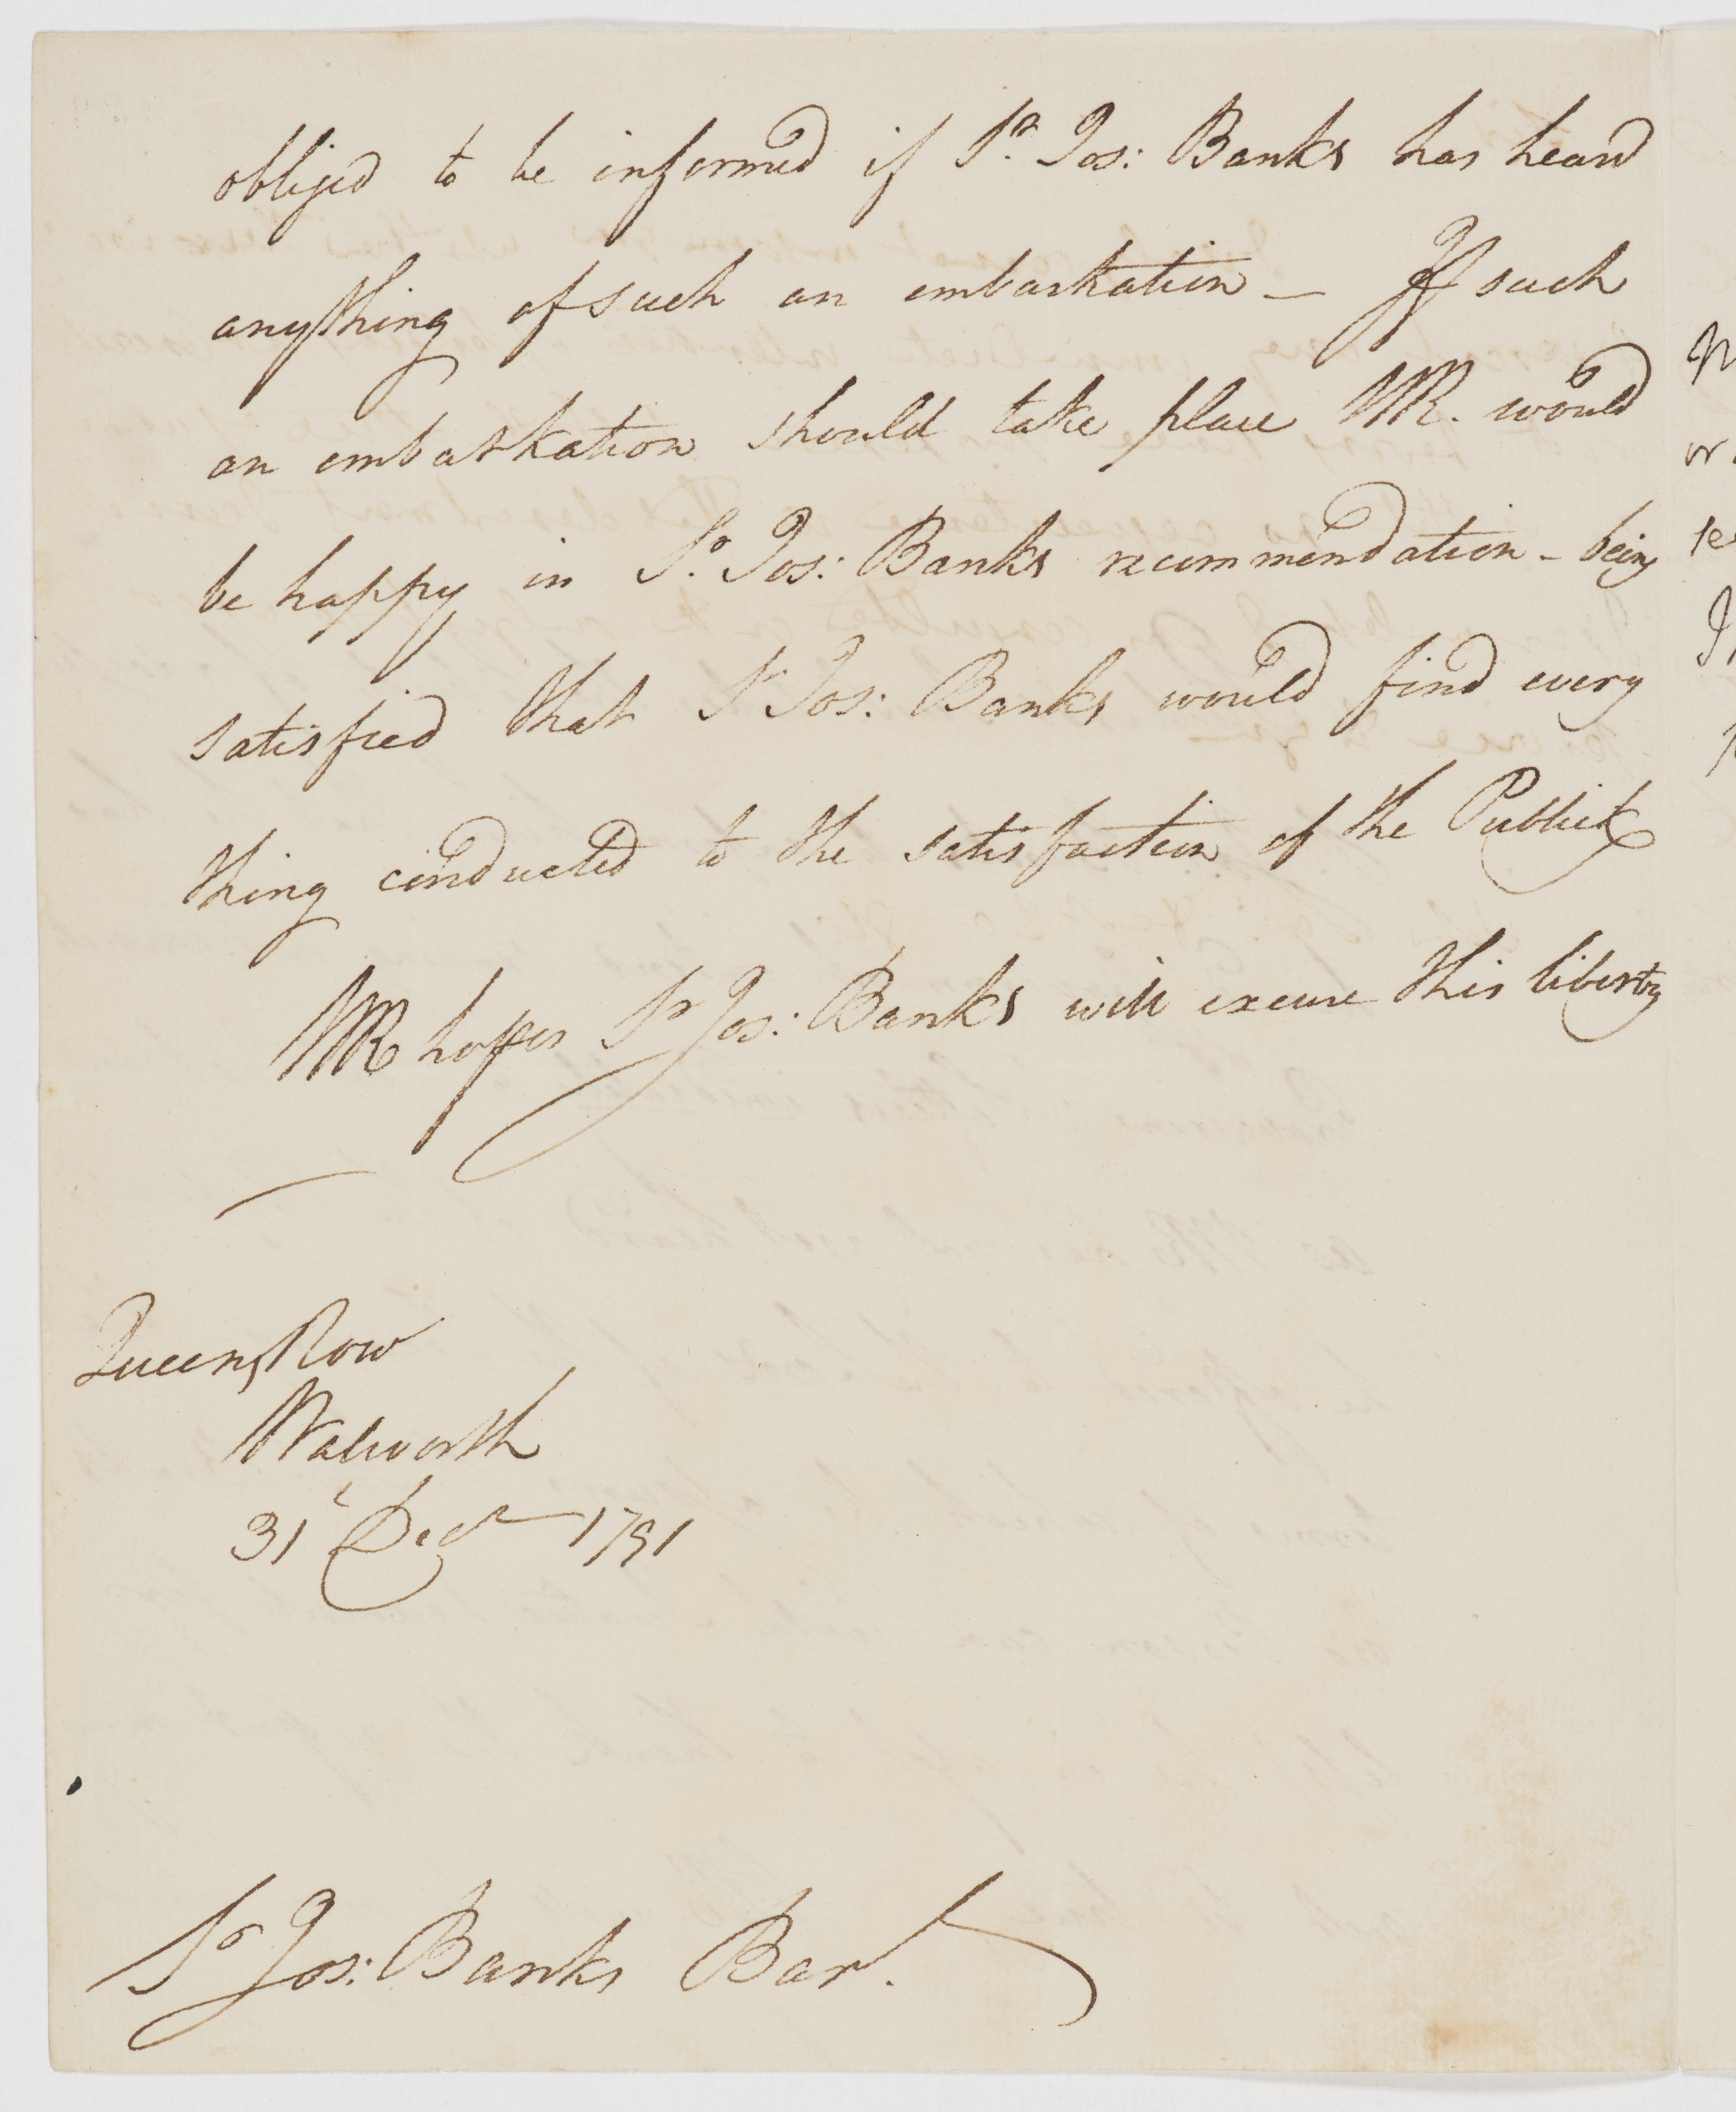 obliged to be informed if Sr. Jos: Banks has heard
anything of such an embarkation — If such
an embarkation should take place WR. would
be happy in Sr. Jos: Banks recommendation - being
satisfied that Sr Jos: Banks would find every
thing conducted to the satisfaction of the Publick
WR hopes Sr Jos: Banks will excuse this liberty
Queens Row
Walworth
31t Decr 1791
Sr Jos: Banks Bart.